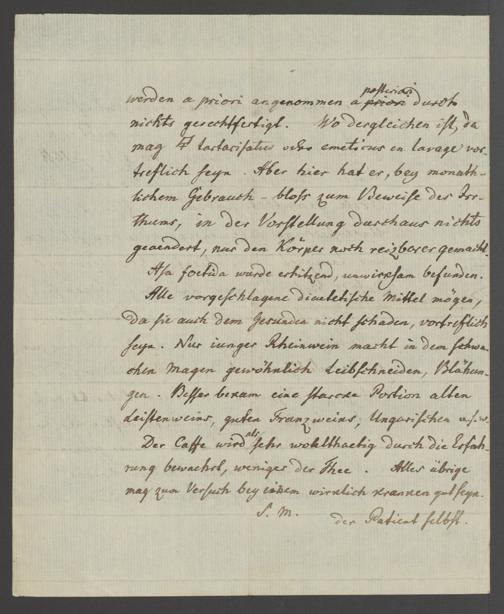 werden a priori angenommen a priori posteriori durch
nichts gerechtfertigt. Wo dergleichen ist, da
mag tartarisatus oder emeticus en lavage vor-
treflich seyn. Aber hier hat er, bey monath-
lichem Gebrauch - bloss zum Beweise des Irr-
thums, in der Vorstellung durchaus nichts
geaendert, nur den Körper noch reizbarer gemacht.
Asa foetida wurde erhitzend, unwirksam befunden.
Alle vorgeschlagene diaetetische Mittel mögen,
da sie auch dem Gesunden nicht schaden, vortreflich
seyn. Nur iunger Rheinwein macht in dem schwa-
chen Magen gewöhnlich Leibschneiden, Blähun-
gen. Besser bekam eine starcke Portion alten
Leistenweins, guten Franzweins, Ungarischen u.s.w.
Der Caffe wird als sehr wohlthaetig durch die Erfah-
rung bewaehrt, weniger der Thee. Alles übrige
mag zum Versuch bey einem wircklich krancken gut seyn.
S. M.
der Patient selbst.